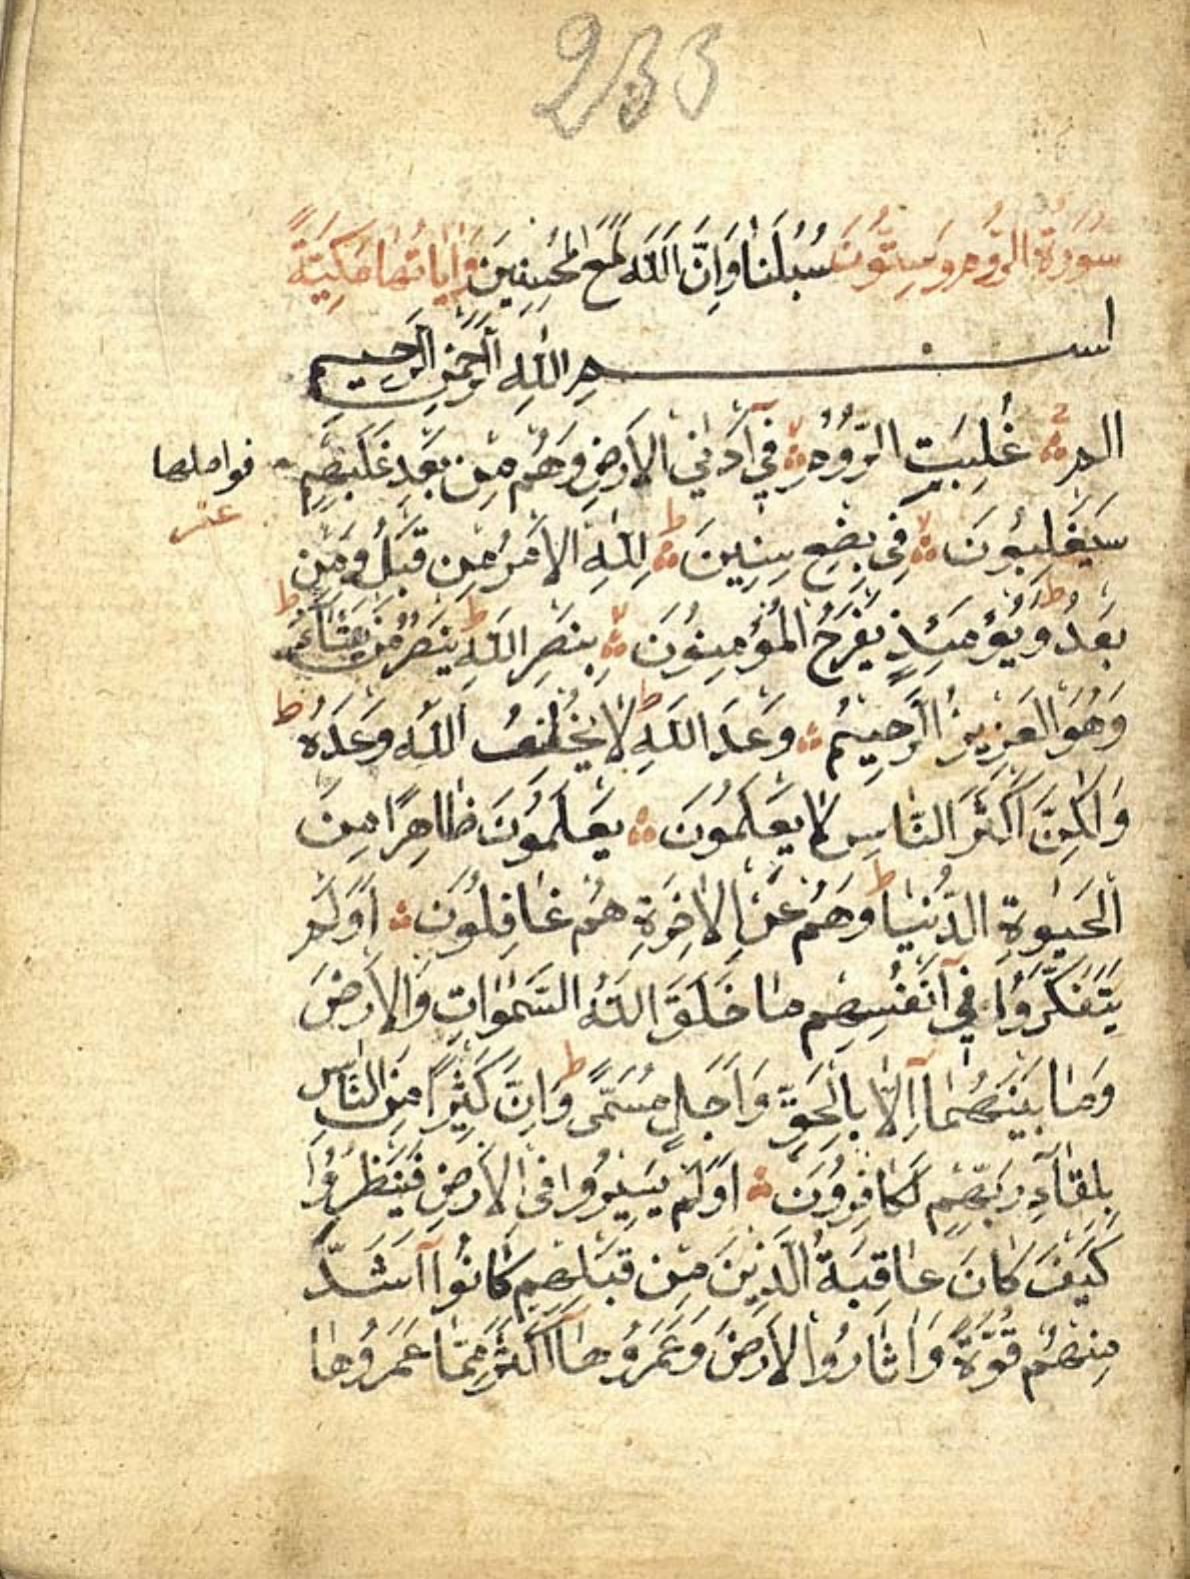 233
سُورَةُ الرُّومِ وَسِتُّونَ سُبُلَنَا وَإِنَّ اللَّهَ لَمَعَ الْمُحْسِنِينَ وَاٰيَاتُهَا مَكِّيَّةٌ
بسم اللهِ الرَّحْمٰنِ الرَّحِيمِ
الم غُلِبَتِ الرُّومُ فِي آَدْنَى الْاَرْضِ وَهُمْ مِنْ بَعْدِ غَلَبِهِمْ
فواصلها
سَيَغْلِبُونَ فِي بِضْعِ سِنِينَ ط لِلّٰهِ الْاَمْرُ مِنْ قَبْلُ وَمِنْ
بَعْدُ ط وَيَوْمَئِذٍ يَفْرَحُ الْمُؤْمِنُونَ لا بِنَصْرِ اللّٰهِ ط يَنْصُرُ مَنْ يَشَاءُ ط
وَهُوَ الْعَزِيزُ الرَّحِيمُ وَعْدَ اللّٰهِ ط لَا يُخْلِفُ اللّٰهُ وَعْدَهُ ط
وَلٰكِنَّ اَكْثَرَ النَّاسِ لَا يَعْلَمُونَ يَعْلَمُونَ ظَاهِرًا مِنَ
الْحَيٰوةِ الدُّنْيَا ط وَهُمْ عَنِ الْاٰخِرَةِ هُمْ غَافِلُونَ اَوَلَمْ
يَتَفَكَّرُوا فِي آَنْفُسِهِمْ مَا خَلَقَ اللّٰهُ السَّمٰوَاتِ وَالْاَرْضَ
وَمَا بَيْنَهُمَا آِلَّا بِالْحَقِّ وَاَجَلٍ مُسَمًّى ط وَاِنَّ كَثِيرًا مِنَ النَّاسِ
بِلِقَاءِ رَبِّهِمْ لَكَافِرُونَ اَوَلَمْ يَسِيرُوا فِي الْاَرْضِ فَيَنْظُرُوا
كَيْفَ كَانَ عَاقِبَةُ الَّذِينَ مِنْ قَبْلِهِمْ كَانُوا آَشَدَّ
مِنْهُمْ قُوَّةً وَاَثَارُوا الْاَرْضَ وَعَمَرُوهَا آَكْثَرَ مِمَّا عَمَرُوهَا